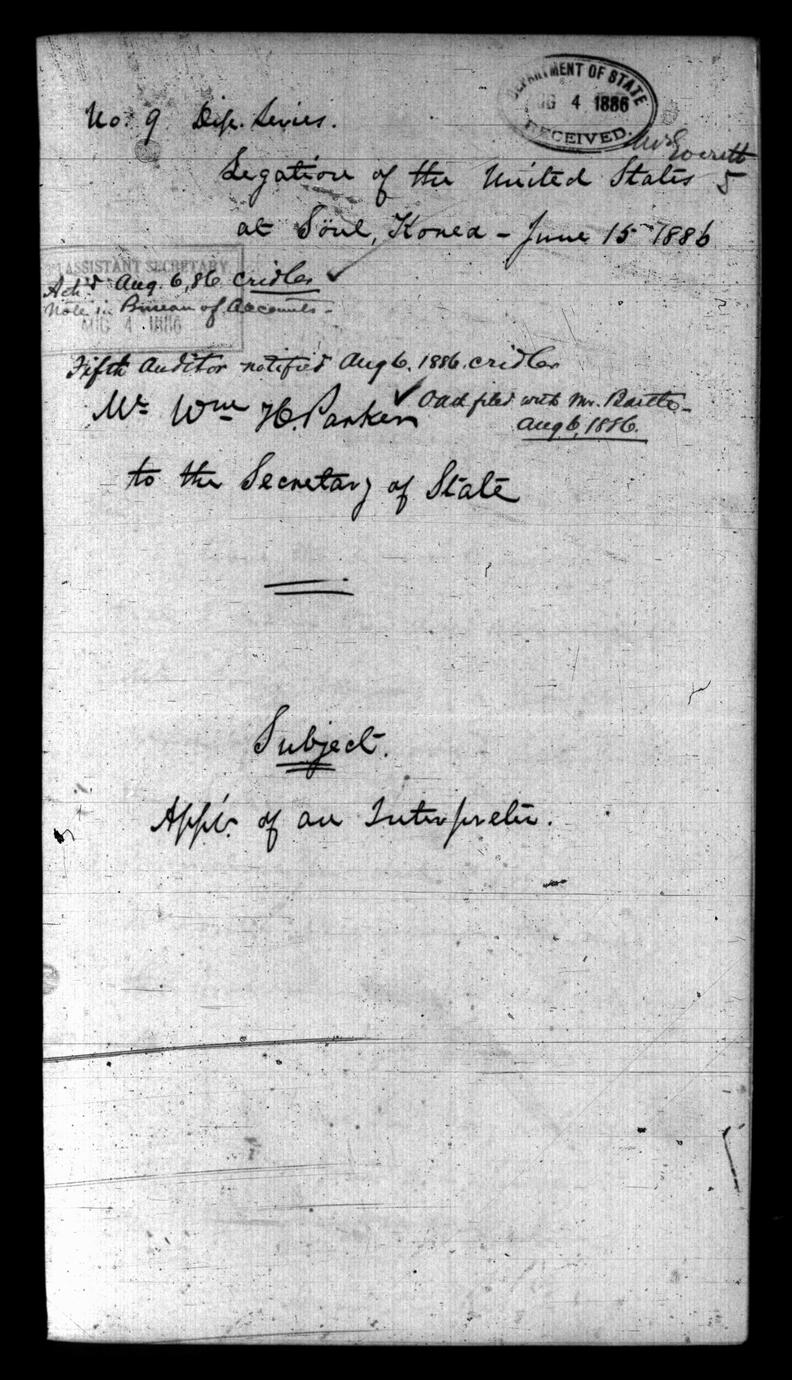 DEPARTMENT OF STATE
AUG 4 1886
RECEIVED.
No. 9 Dip. Series.
Mr Everett
5
Legation of the United States
at Söul, Korea - June 15 1886
ASSISTANT SECRETARY
AUG 4 1886
Ack'd Aug. 6, 86. Cridler
Note in Bureau of Accounts.
Fifth Auditor notified Aug 6. 1886. Cridler
Mr Wm H. Parker
Oath filed with Mr.
Aug 6, 1886.
to the Secretary of State
Subject.
App't of an Interpreter.